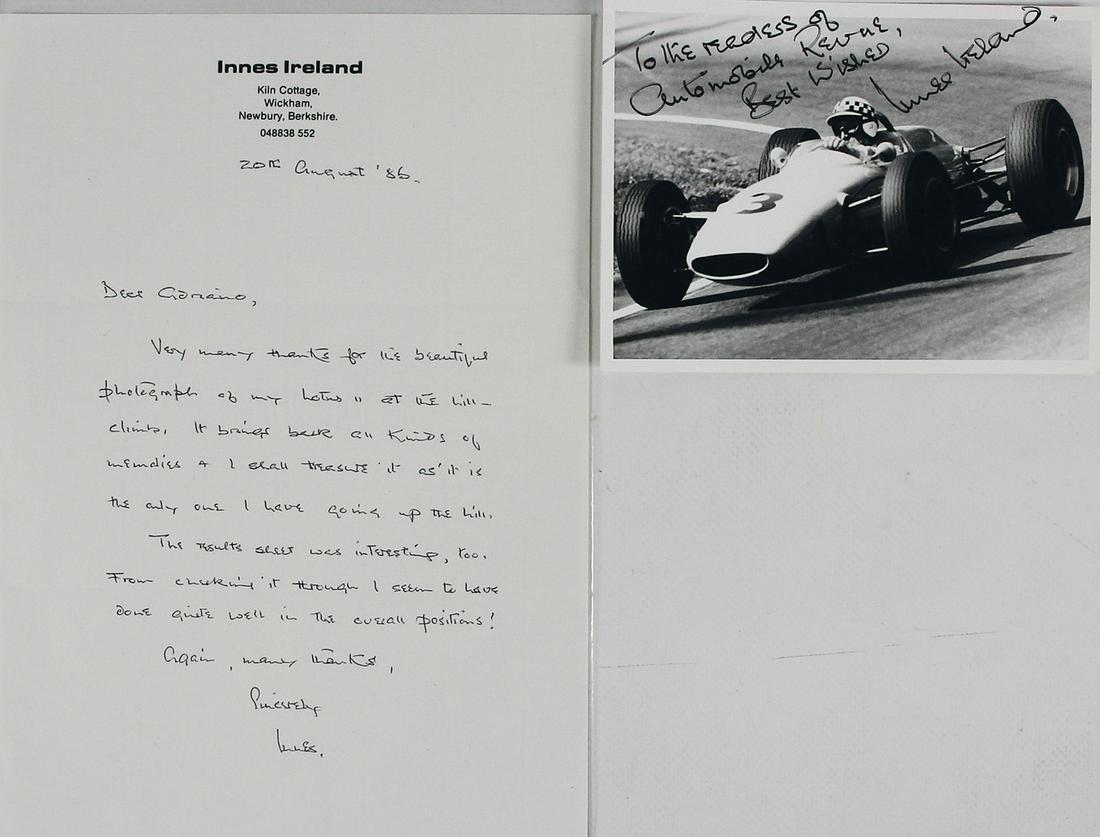 Innes Ireland
Kiln Cottage,
Wickham,
Newbury, Berkshire.
048838 552
20th August '86.
Dear Adriano,
Very many thanks for the beautiful
photograph of my Lotus 11 at the hill-
climb. It brings back all kinds of
memories & I shall treasure it as it is
the only one I have going up the hill.
The results sheet was interesting, too.
From checking it through I seem to have
done quite well in the overall positions!
Again, many thanks,
Sincerely
Innes.
To the readers of
Automobile Revue,
Best Wishes
Innes Ireland.
3